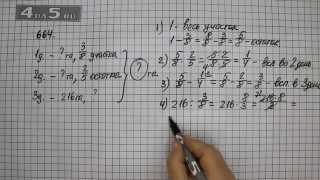 4 на 5.ru
664.
1д. - ? га, 3/8 участка
2д. - ? га, 2/5 остатка
3д. - 216 га, ?
? га.
1) 1 - весь участок
1 - 3/8 = 8/8 - 3/8 = 5/8 - остаток
2) 5/8 · 2/5 = 5·2/8·5 = 1/4 - всп. во 2 день
3) 5/8 - 1/4 = 5/8 - 2/8 = 3/8 - всп. в 3 день
4) 216 : 3/8 = 216 · 8/3 = 216·8/3 =